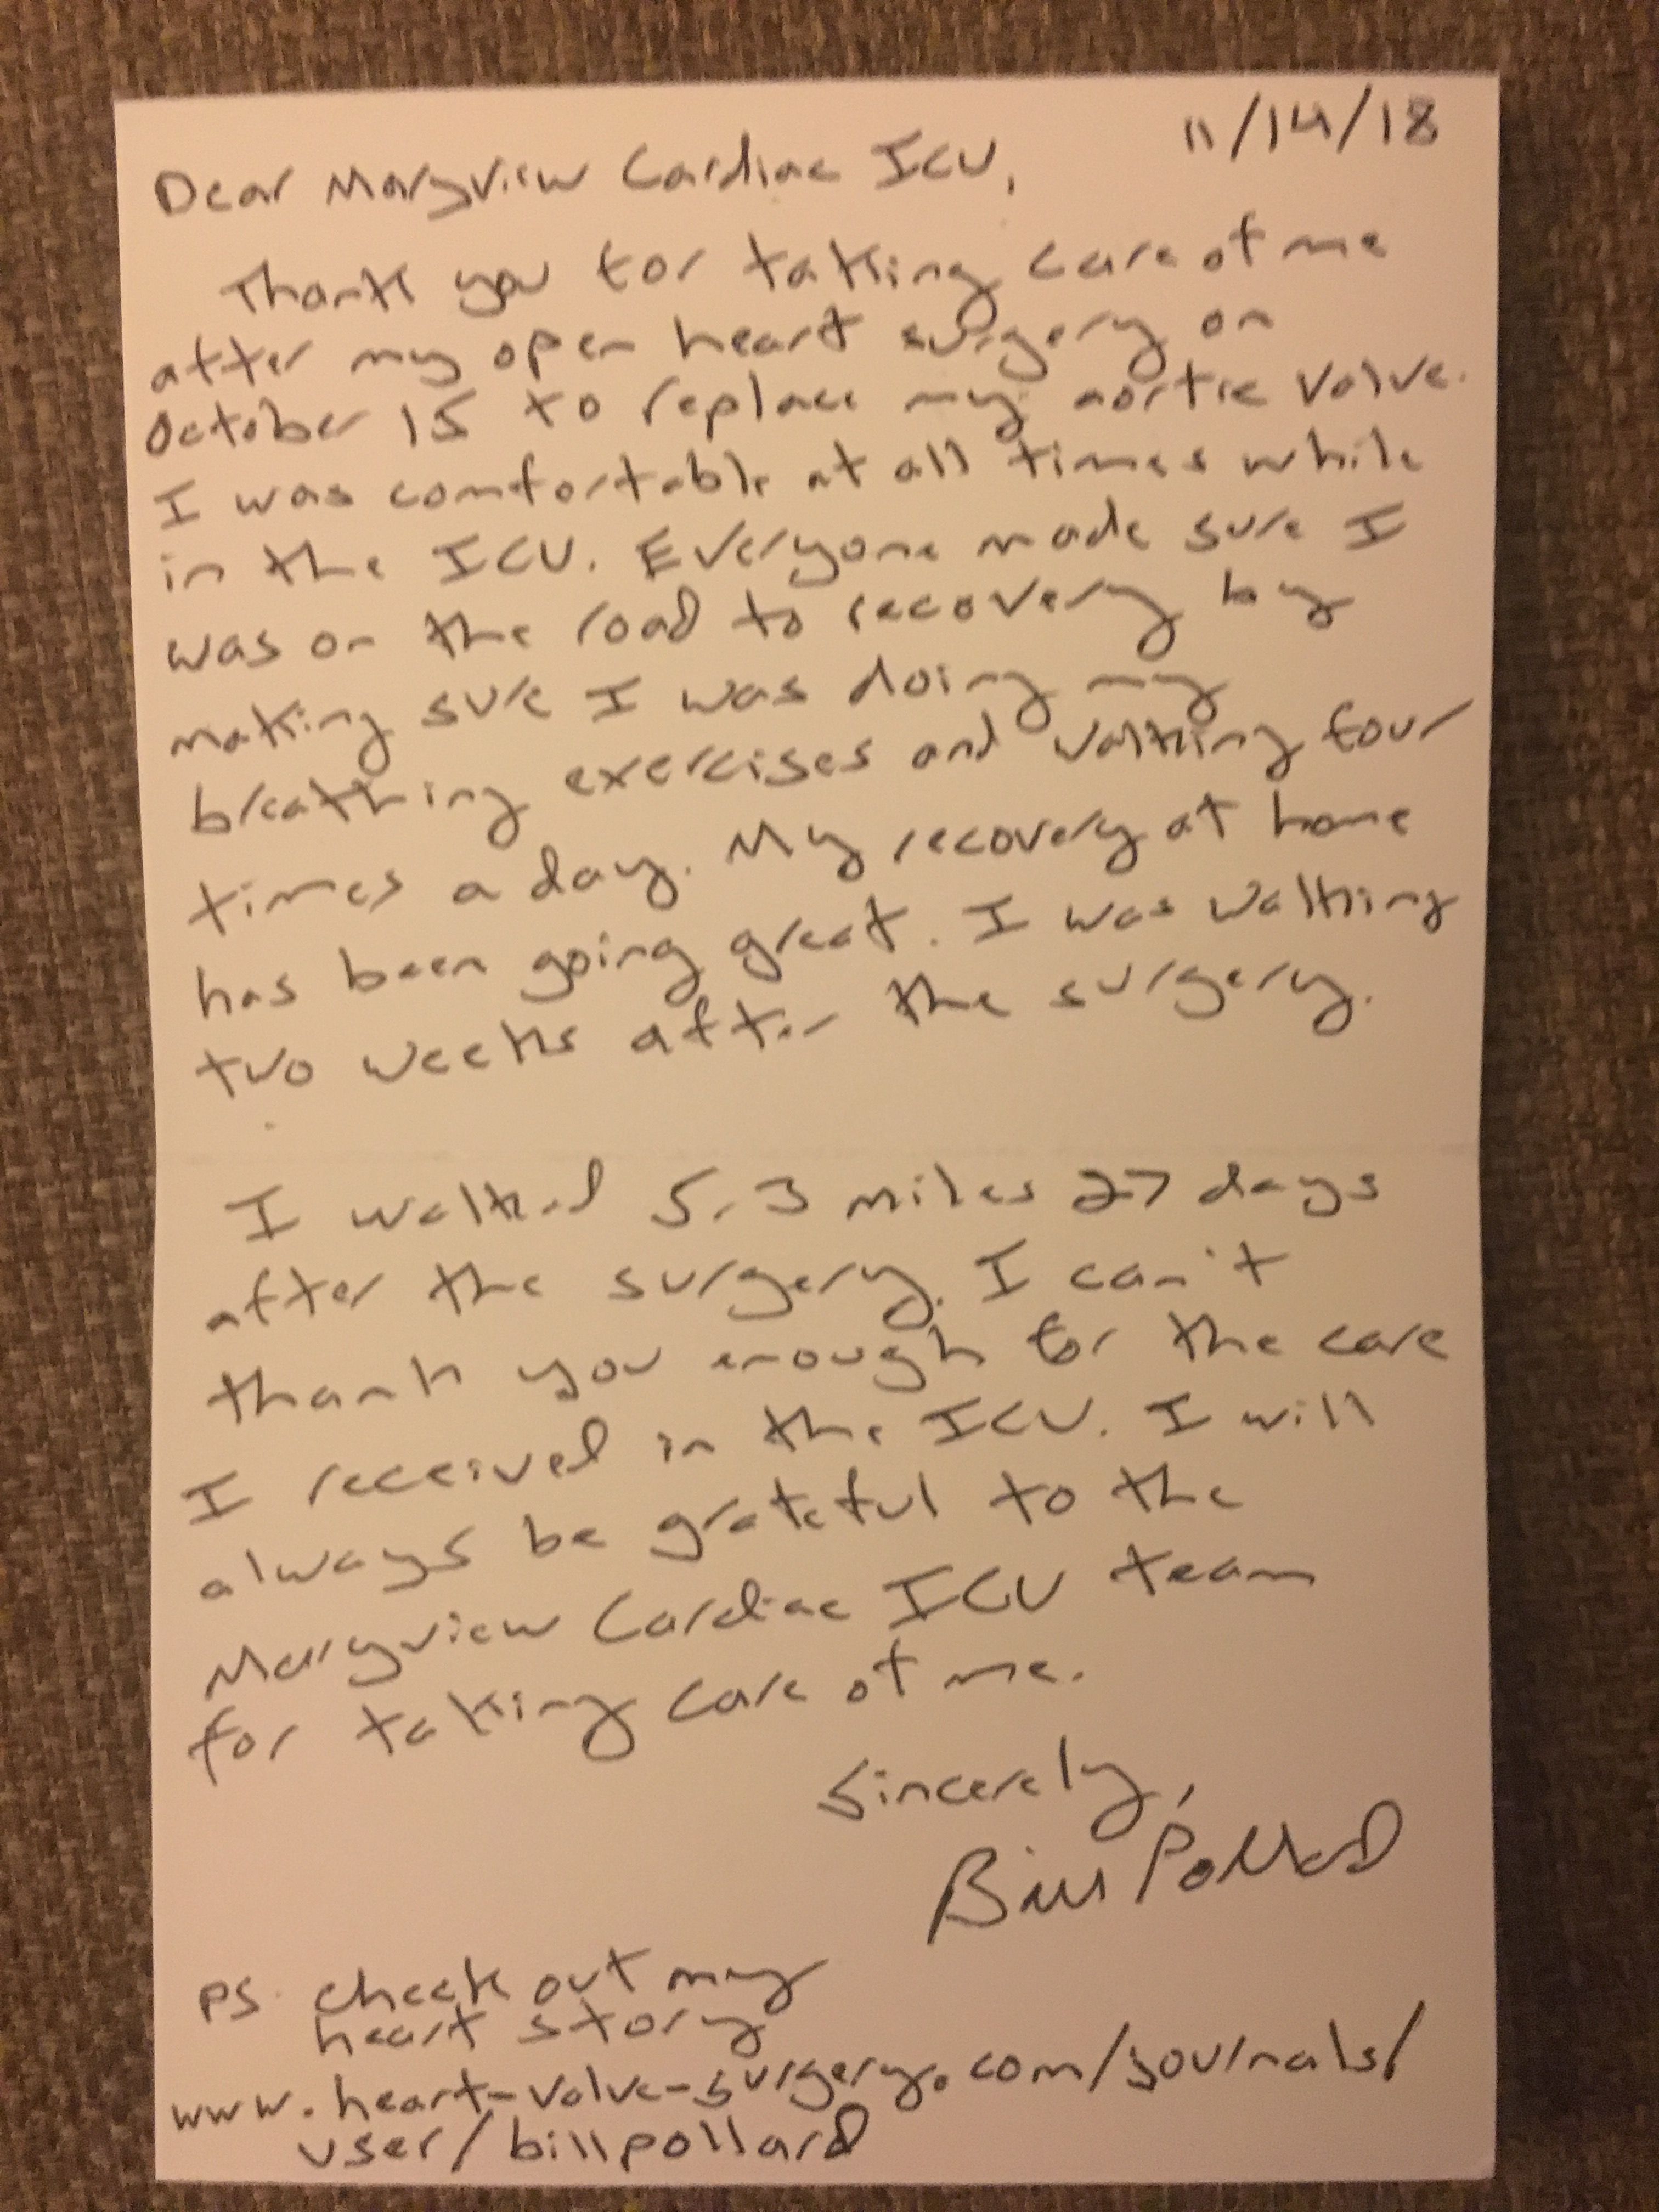 11/14/18
Dear Maryview Cardiac ICU,
Thank you for taking care of me
after my open heart surgery on
October 15 to replace my aortic valve.
I was comfortable at all times while
in the ICU. Everyone made sure I
was on the road to recovery by
making sure I was doing my
breathing exercises and walking four
times a day. My recovery at home
has been going great. I was walking
two weeks after the surgery.
I walked 5.3 miles 27 days
after the surgery. I can't
thank you enough for the care
I received in the ICU. I will
always be grateful to the
Maryview Cardiac ICU team
for taking care of me.
Sincerely,
Bill Pollard
PS. check out my
heart story
www.heart-valve-surgery.com/journals/
user/billpollard